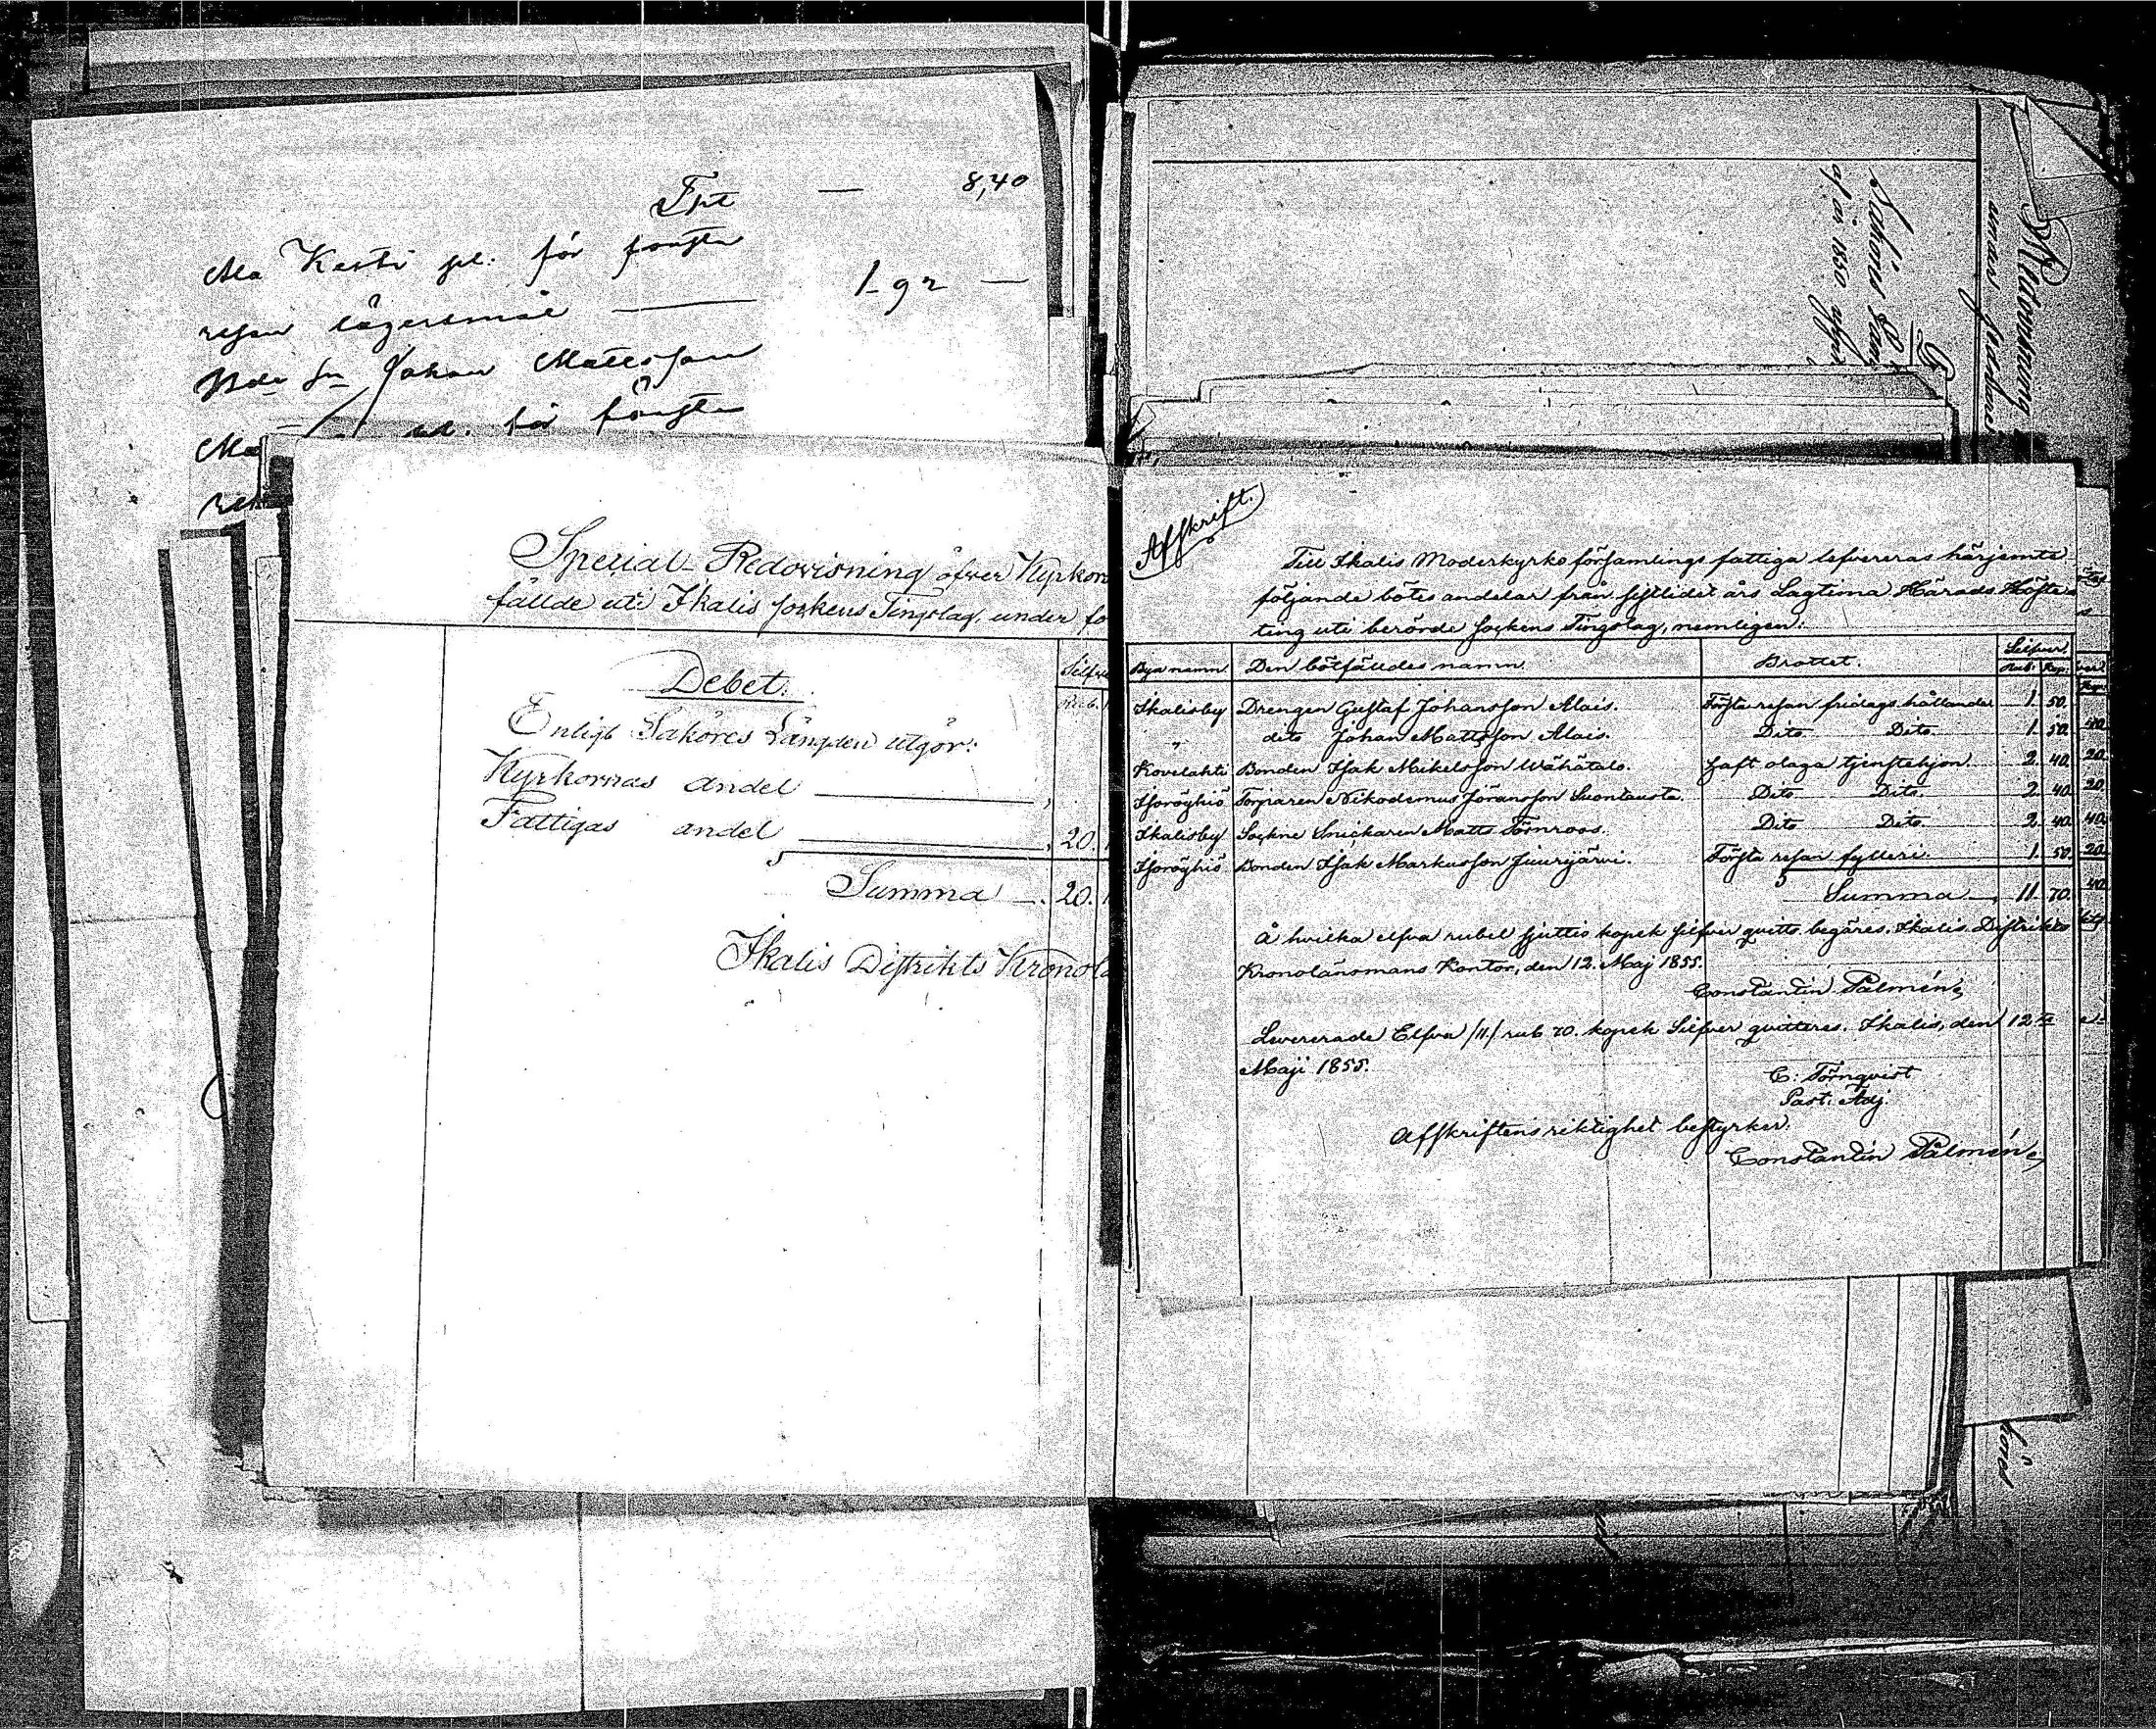 Tpt — 8,40
Ma Kesti pl. för första
resan lägersmål — 1 92 —
Johan Mattsson
för första
Special-Redovisning öfver Kyrkor
fällde uti Ikalis sockens Tingslag, under
Debet.
Silfve
Rub.
Enligt Saköres Längden utgör:
Kyrkornas andel
Fattigas andel 20.
Summa 20.
Ikalis Distrikts Kronolä
af år 1850
Afskrift.
Till Ikalis Moderkyrko församlings fattiga lefvereras härjemte
följande bötes andelar från sistlidet års Lagtima Härads Höste
ting uti berörde sockens Tingslag, nemligen:
Bya namn. Den bötfälldes namn. Brottet. Silfver.
Rub. Kop.
Ikalisby Drengen Gustaf Johansson Alais. Första resan fridags hållande 1. 50.
„ dito Johan Mattsson Alais. Dito Dito 1. 50.
Kovelahti Bonden Isak Mikelsson Wähätalo. haft olaga tjenstehjon 2. 40.
Isoröyhiö Torparen Nikodemus Jöransson Suontausta. Dito Dito. 2. 40.
Ikalisby Sockne Snickaren Matts Törnroos. Dito Dito. 2. 40.
Isoröyhiö Bonden Isak Markusson Juurijärvi. Första resan fylleri. 1. 50.
Summa 11. 70.
Å hvilka elfva rubel sjuttio kopek silfver qvitto begäres. Ikalis Distrikts
Kronolänsmans Kontor, den 12. Maj 1855.
Constantin Palmén
Levererade Elfva /11/ rub 70. kopek Silfver qvitteras. Ikalis, den 12te
Maji 1855.
C. Törnqvist
Past. Adj.
Afskriftens riktighet bestyrker.
Constantin Palmén